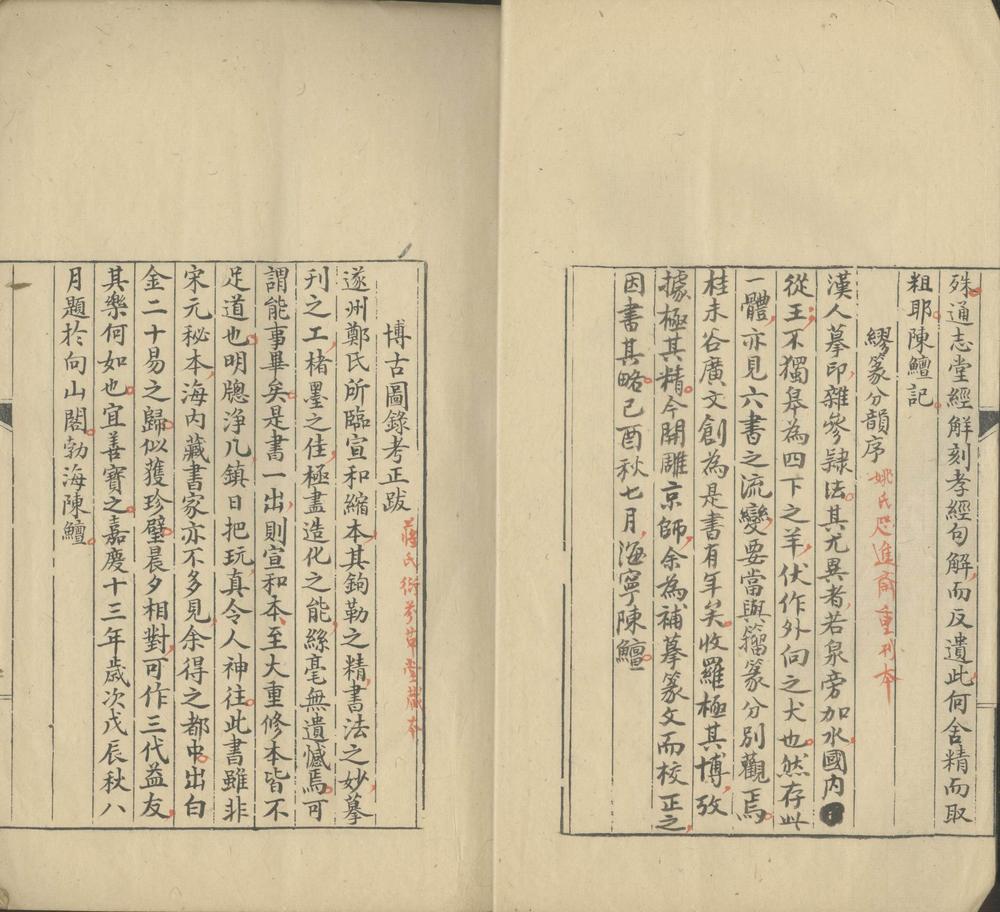 殊通志堂經解刻孝經句解而反遺此何舍精而取
粗耶陳鱣記
繆篆分韻序 姚氏咫進齋重刊本
漢人摹印雜參隸法其尤異者若泉旁加水國内
從王不獨皋為四下之羊伏作外向之犬也然存此
一體亦見六書之流變要當與籀篆分別觀焉
桂未谷廣文創為是書有年矣收羅極其博攷
據極其精今開雕京師余為補摹篆文而校正之
因書其略己酉秋七月海寧陳鱣
博古圖錄考正跋 蔣氏衍芬草堂藏本
遂州鄭氏所臨宣和縮本其鉤勒之精書法之妙摹
刊之工楮墨之佳極盡造化之能絲毫無遺憾焉可
謂能事畢矣是書一出則宣和本至大重修本皆不
足道也明牕浄几鎮日把玩真令人神往此書雖非
宋元秘本海内藏書家亦不多見余得之都中出白
金二十易之歸似獲珍璧晨夕相對可作三代益友
其樂何如也宜善寳之嘉慶十三年歲次戊辰秋八
月題於向山閣勃海陳鱣